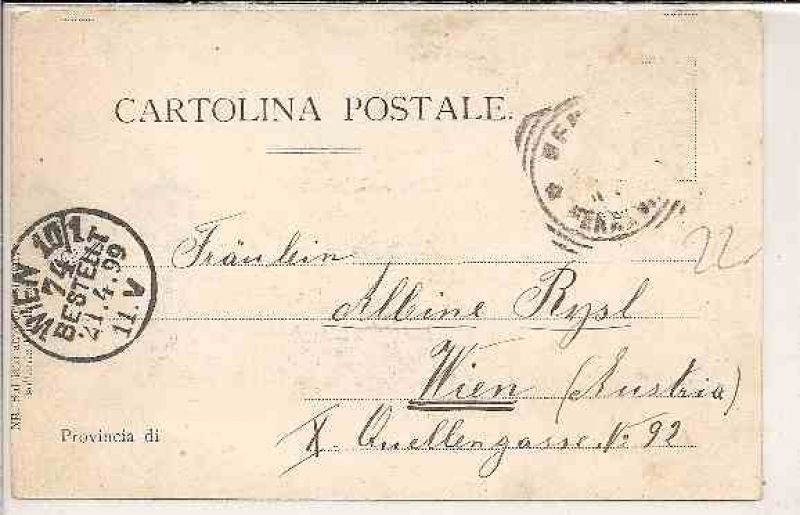 CARTOLINA POSTALE.
WIEN 10/1
74
BESTELLT
21.4.99
11.V
Fräulein
Albine Rysl
Wien (Austria)
X. Quellengasse No 92
Provincia di
22
NB.